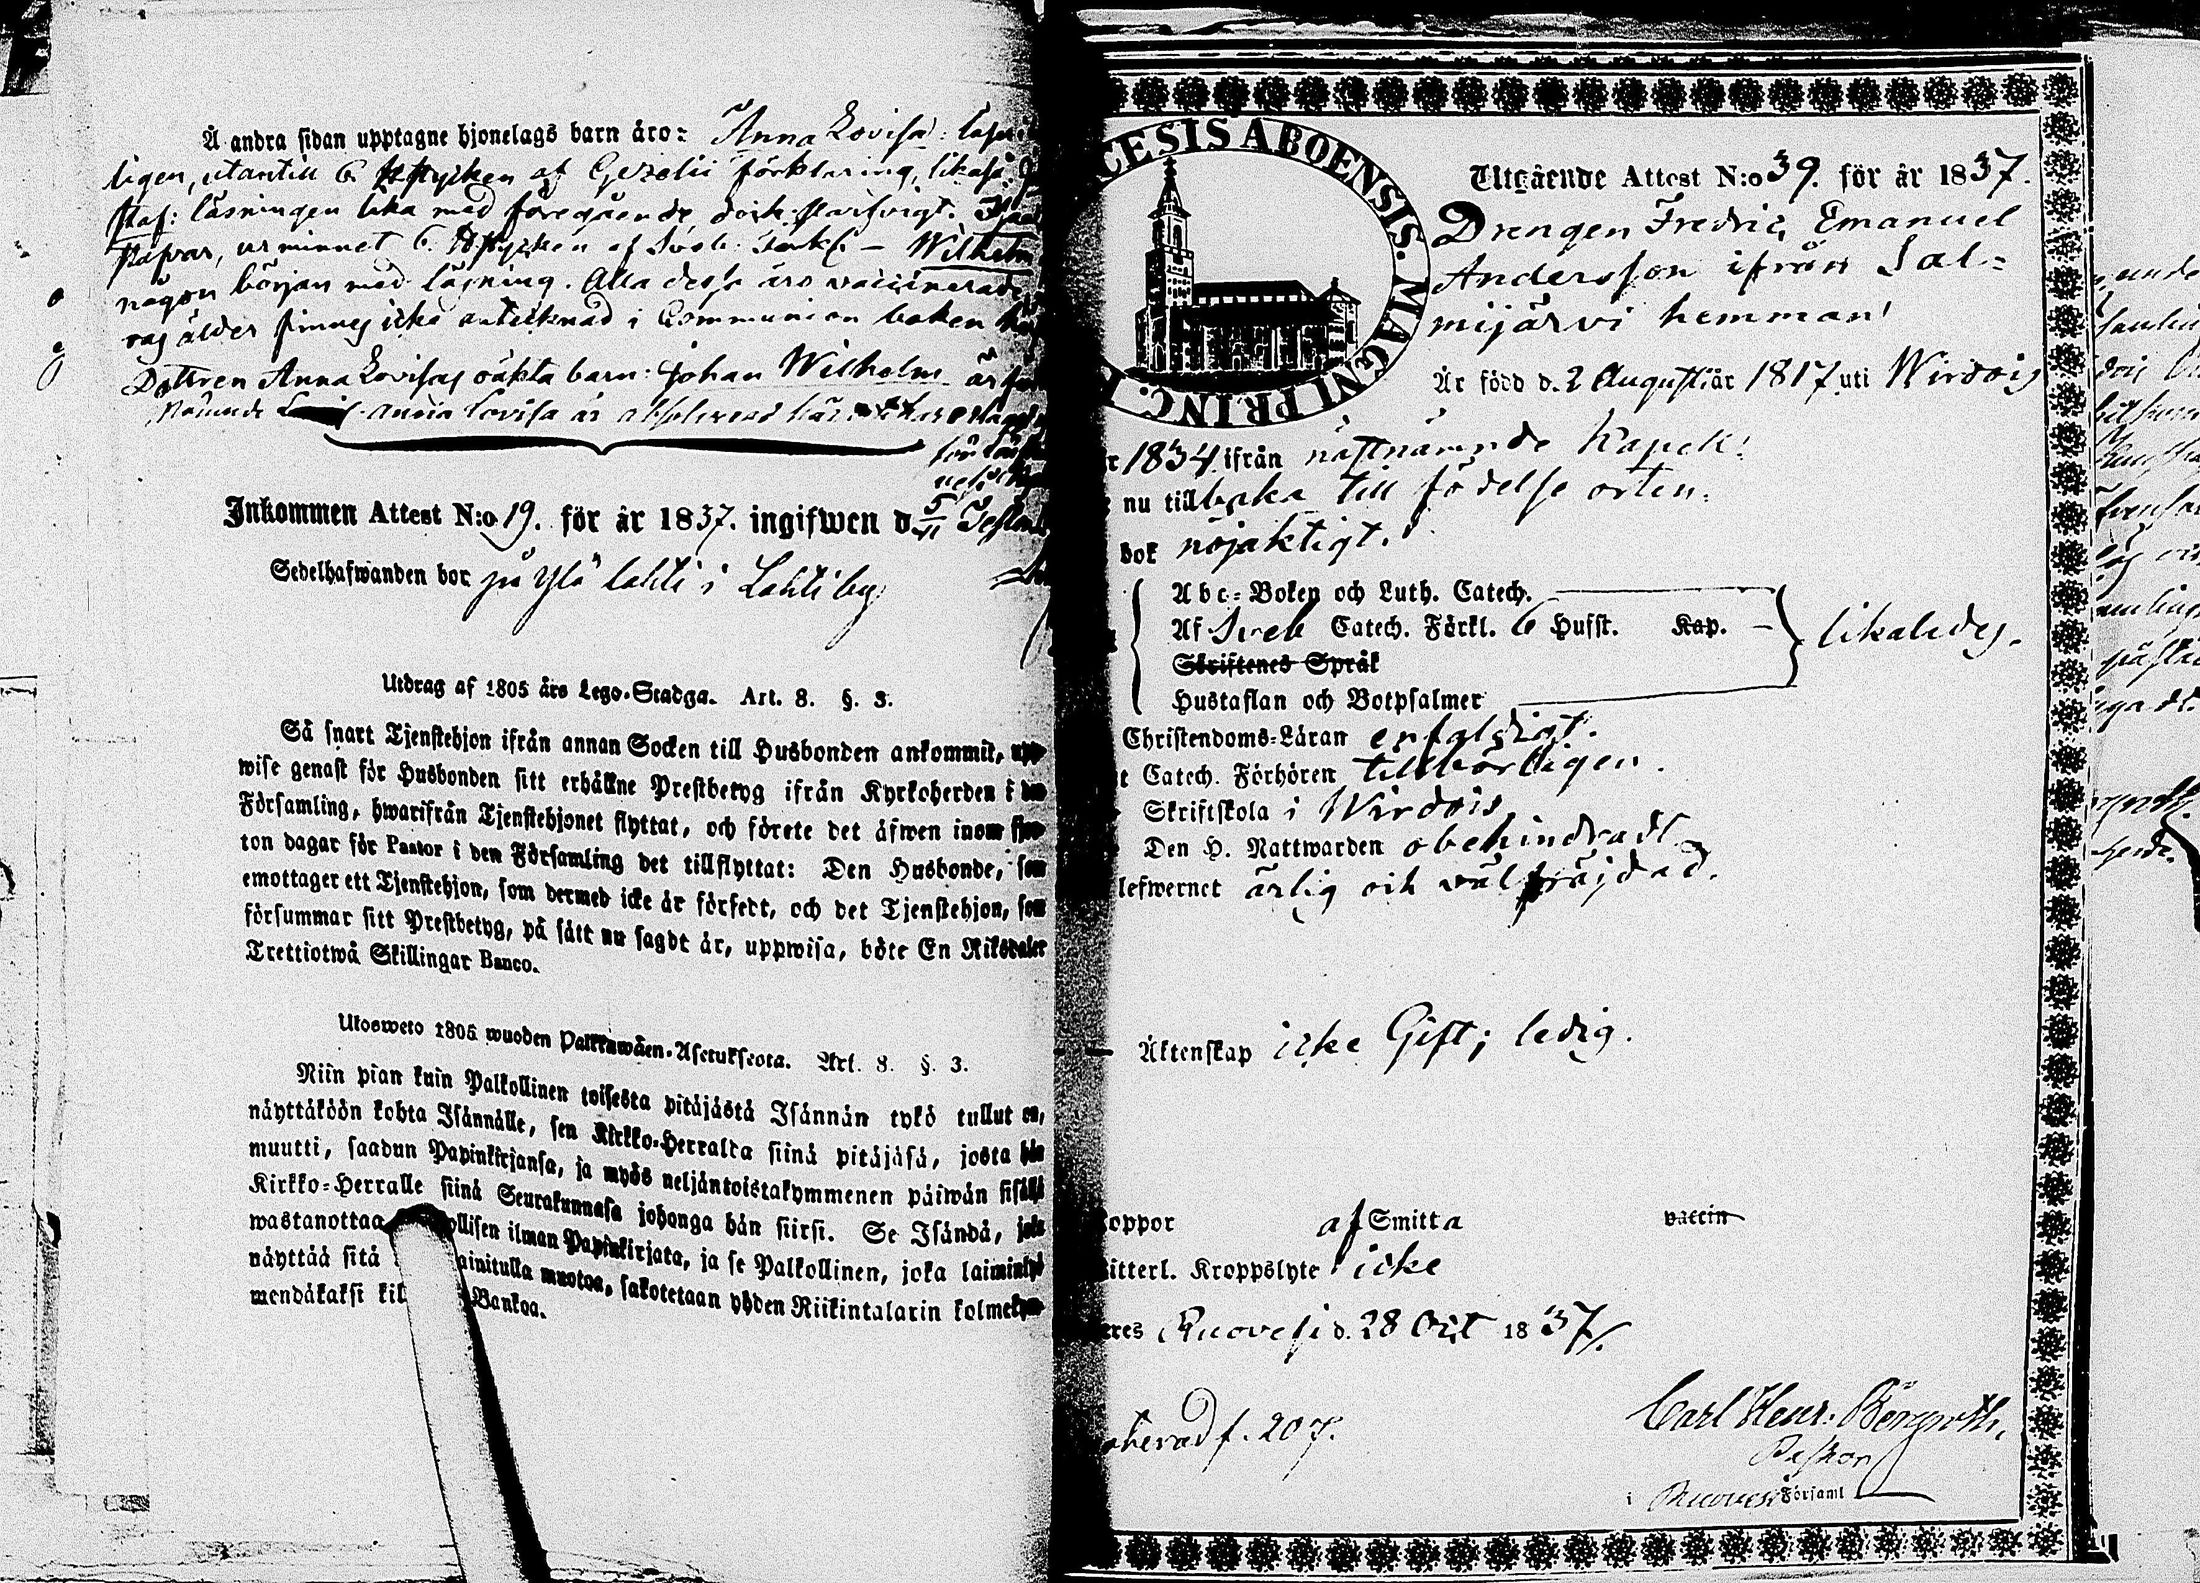 Å andra sidan upptagne hjonelags barn äro: Anna Lovisa:
ligen, utantill 6 H stycken af Gezelii förklaring, likaså
Staf: läsningen lika med föregående dock
stafvar, ur minnet 6 H stycken af Sveb. — Wilhelm
någon början med läsning. Alla dessa äro vaccinerade,
ålder finnes icke antecknad i Communion boken
Dottren Anna Lovisas oäkta barn: Johan Wilhelm är
Anna Lovisa är absolverad här
Inkommen Attest N:o 19. för år 1837. ingifwen d. 5/11
Sedelhafwanden bor på Ylä lahti i Lahti by
Utdrag af 1805 års Lego-Stadga. Art. 8. §. 3.
Så snart Tjenstehjon ifrån annan Socken till Husbonden ankommit, upp-
wise genast för Husbonden sitt erhållne Prestbetyg ifrån Kyrkoherden i den
Församling, hwarifrån Tjenstehjonet flyttat, och förete det äfwen inom fjor-
ton dagar för Pastor i den Församling det tillflyttat: Den Husbonde, som
emottager ett Tjenstehjon, som dermed icke är försedt, och det Tjenstehjon, som
försummar sitt Prestbetyg, på sätt nu sagdt är, uppwisa, böte En Riksdaler
Trettiotwå Skillingar Banco.
Ulosweto 1805 wuoden Palkkawäen-Asetuksesta. Art. 8. §. 3.
Niin pian kuin Palkollinen toisesta pitäjästä Isännän tykö tullut on,
näyttäköön kohta Isännälle, sen Kirkko-Herralta siinä pitäjäsä, josta hän
muutti, saadun Papinkirjansa, ja myös neljäntoistakymmenen päiwän sisällä
Kirkko-Herralle siinä Seurakunnasa johonga hän siirsi. Se Isändä, joka
wastanottaa ollisen ilman Papinkirjata, ja se Palkollinen, joka laiminlyö
näyttää sitä ainitulla muotoa, sakotetaan yhden Riikintalarin kolmekym-
mendäkaksi kil Bankoa.
CESIS ABOENSIS. MAGNI PRINC.
Utgående Attest N:o 39. för år 1837.
Drengen Fredric Emanuel
Andersson ifrån Sal-
mijärvi hemman
Är född d. 2 Augusti år 1817 uti Wirdois
r 1834 ifrån nästnämnde Kapell.
nu tillbaka till födelse orten.
bok nöjaktigt.
Abc-Boken och Luth. Catech.
Af Sveb Catech. Förkl. 6 Hufst. Kap. likaledes.
Skriftenes Språk
Hustaflan och Botpsalmer
Christendoms-Läran enfaldigt.
t Catech. Förhören tillbörligen.
Skriftskola i Wirdois
Den H. Nattwarden obehindradt
lefwernet ärlig och välfräjdad.
Äktenskap icke Gift; ledig.
oppor af Smitta vaccin
itterl. Kroppslyte icke
eres Ruovesi d. 28 Oct 1837.
f. 207.
Carl Henr. Bergroth,
Pastor
i Ruovesi Församl